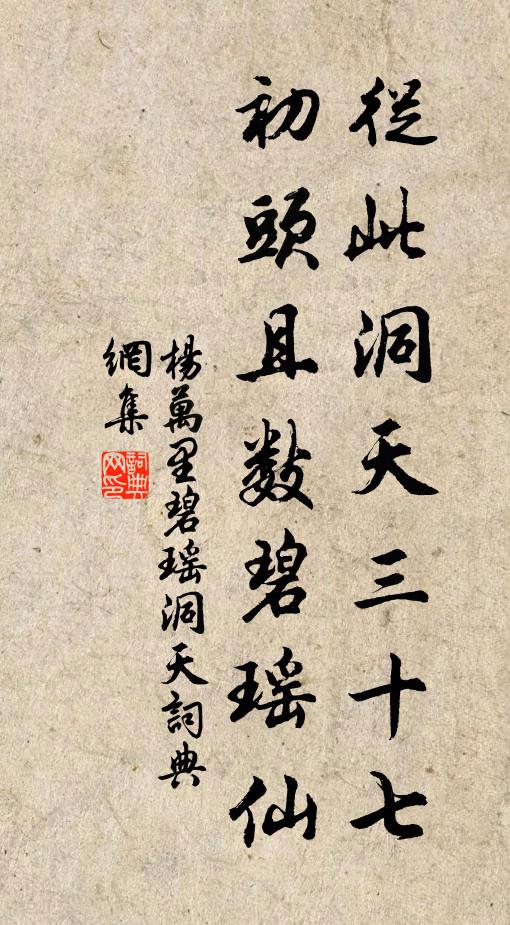 從此洞天三十七
初頭且數碧瑤仙
楊萬里碧瑤洞天詞典
網集
詞典
網印